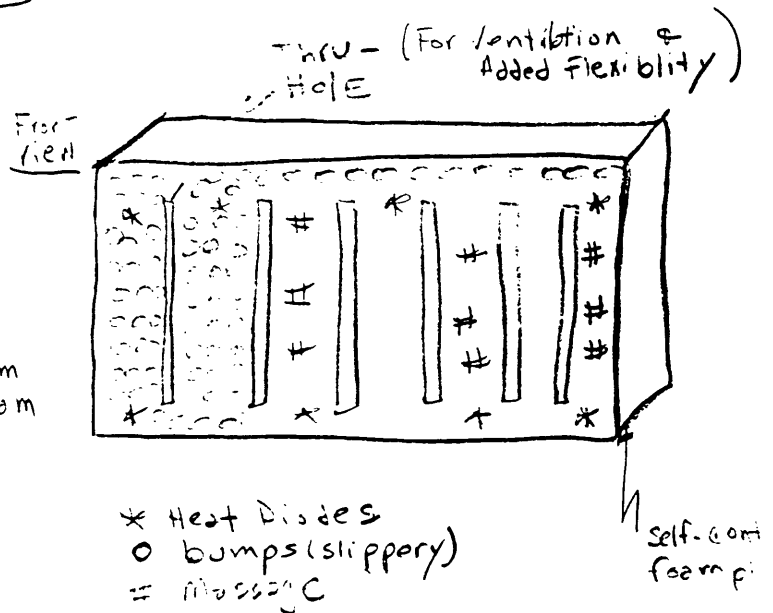 Thru- (For Ventibtion &
Added Flexiblity)
HolE
* Heat Diodes
o bumps (slippery)
# Massage
Self-cont
foam pi